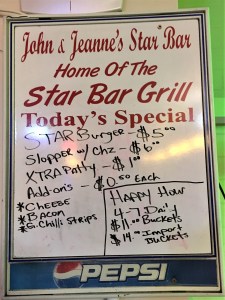 John & Jeanne's Star Bar
Home Of The
Star Bar Grill
Today's Special
STAR Burger - $5.00
Slopper w/ Chz - $6.00
XTRA Patty - $1.00
Add-ons - $0.50 Each
*CHEESE
*Bacon
*G. Chili Strips
Happy Hour
4-7 Daily
$11.00 Buckets
$14.00 Import
Buckets
PEPSI